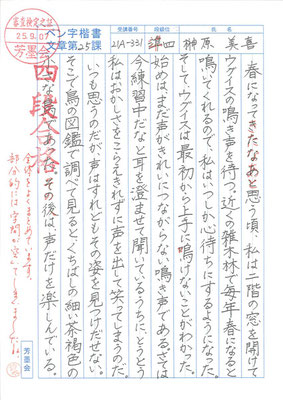 審査検定之証
25.9.07
芳墨会
ペン字楷書
文章第25課
受講番号
21A-331
段級位
準四
氏名
榊原 美喜
春になってきたなあと思う頃、私は二階の窓を開けて
ウグイスの鳴き声を待つ。近くの雑木林で毎年春になると
鳴いてくれるので、私はいつしか心待ちにするようになった。
そして、ウグイスは最初から上手に鳴けないことがわかった。
始めは、まだ声がきれいにつながらない鳴き声である。さては
今練習中だなと耳を澄ませて聞いているうちに、とうとう
私はおかしさをこらえきれずに声を出して笑ってしまうのだ。
いつも思うのだが声はすれどもその姿を見つけだせない。
そこで鳥の図鑑で調べて見ると、くちばしの細い茶褐色の
鳥であった。その後は声だけを楽しんでいる。
四段合格
全体をよくまとめています。
部分的には字間が空いてしまいましたね。
芳墨会